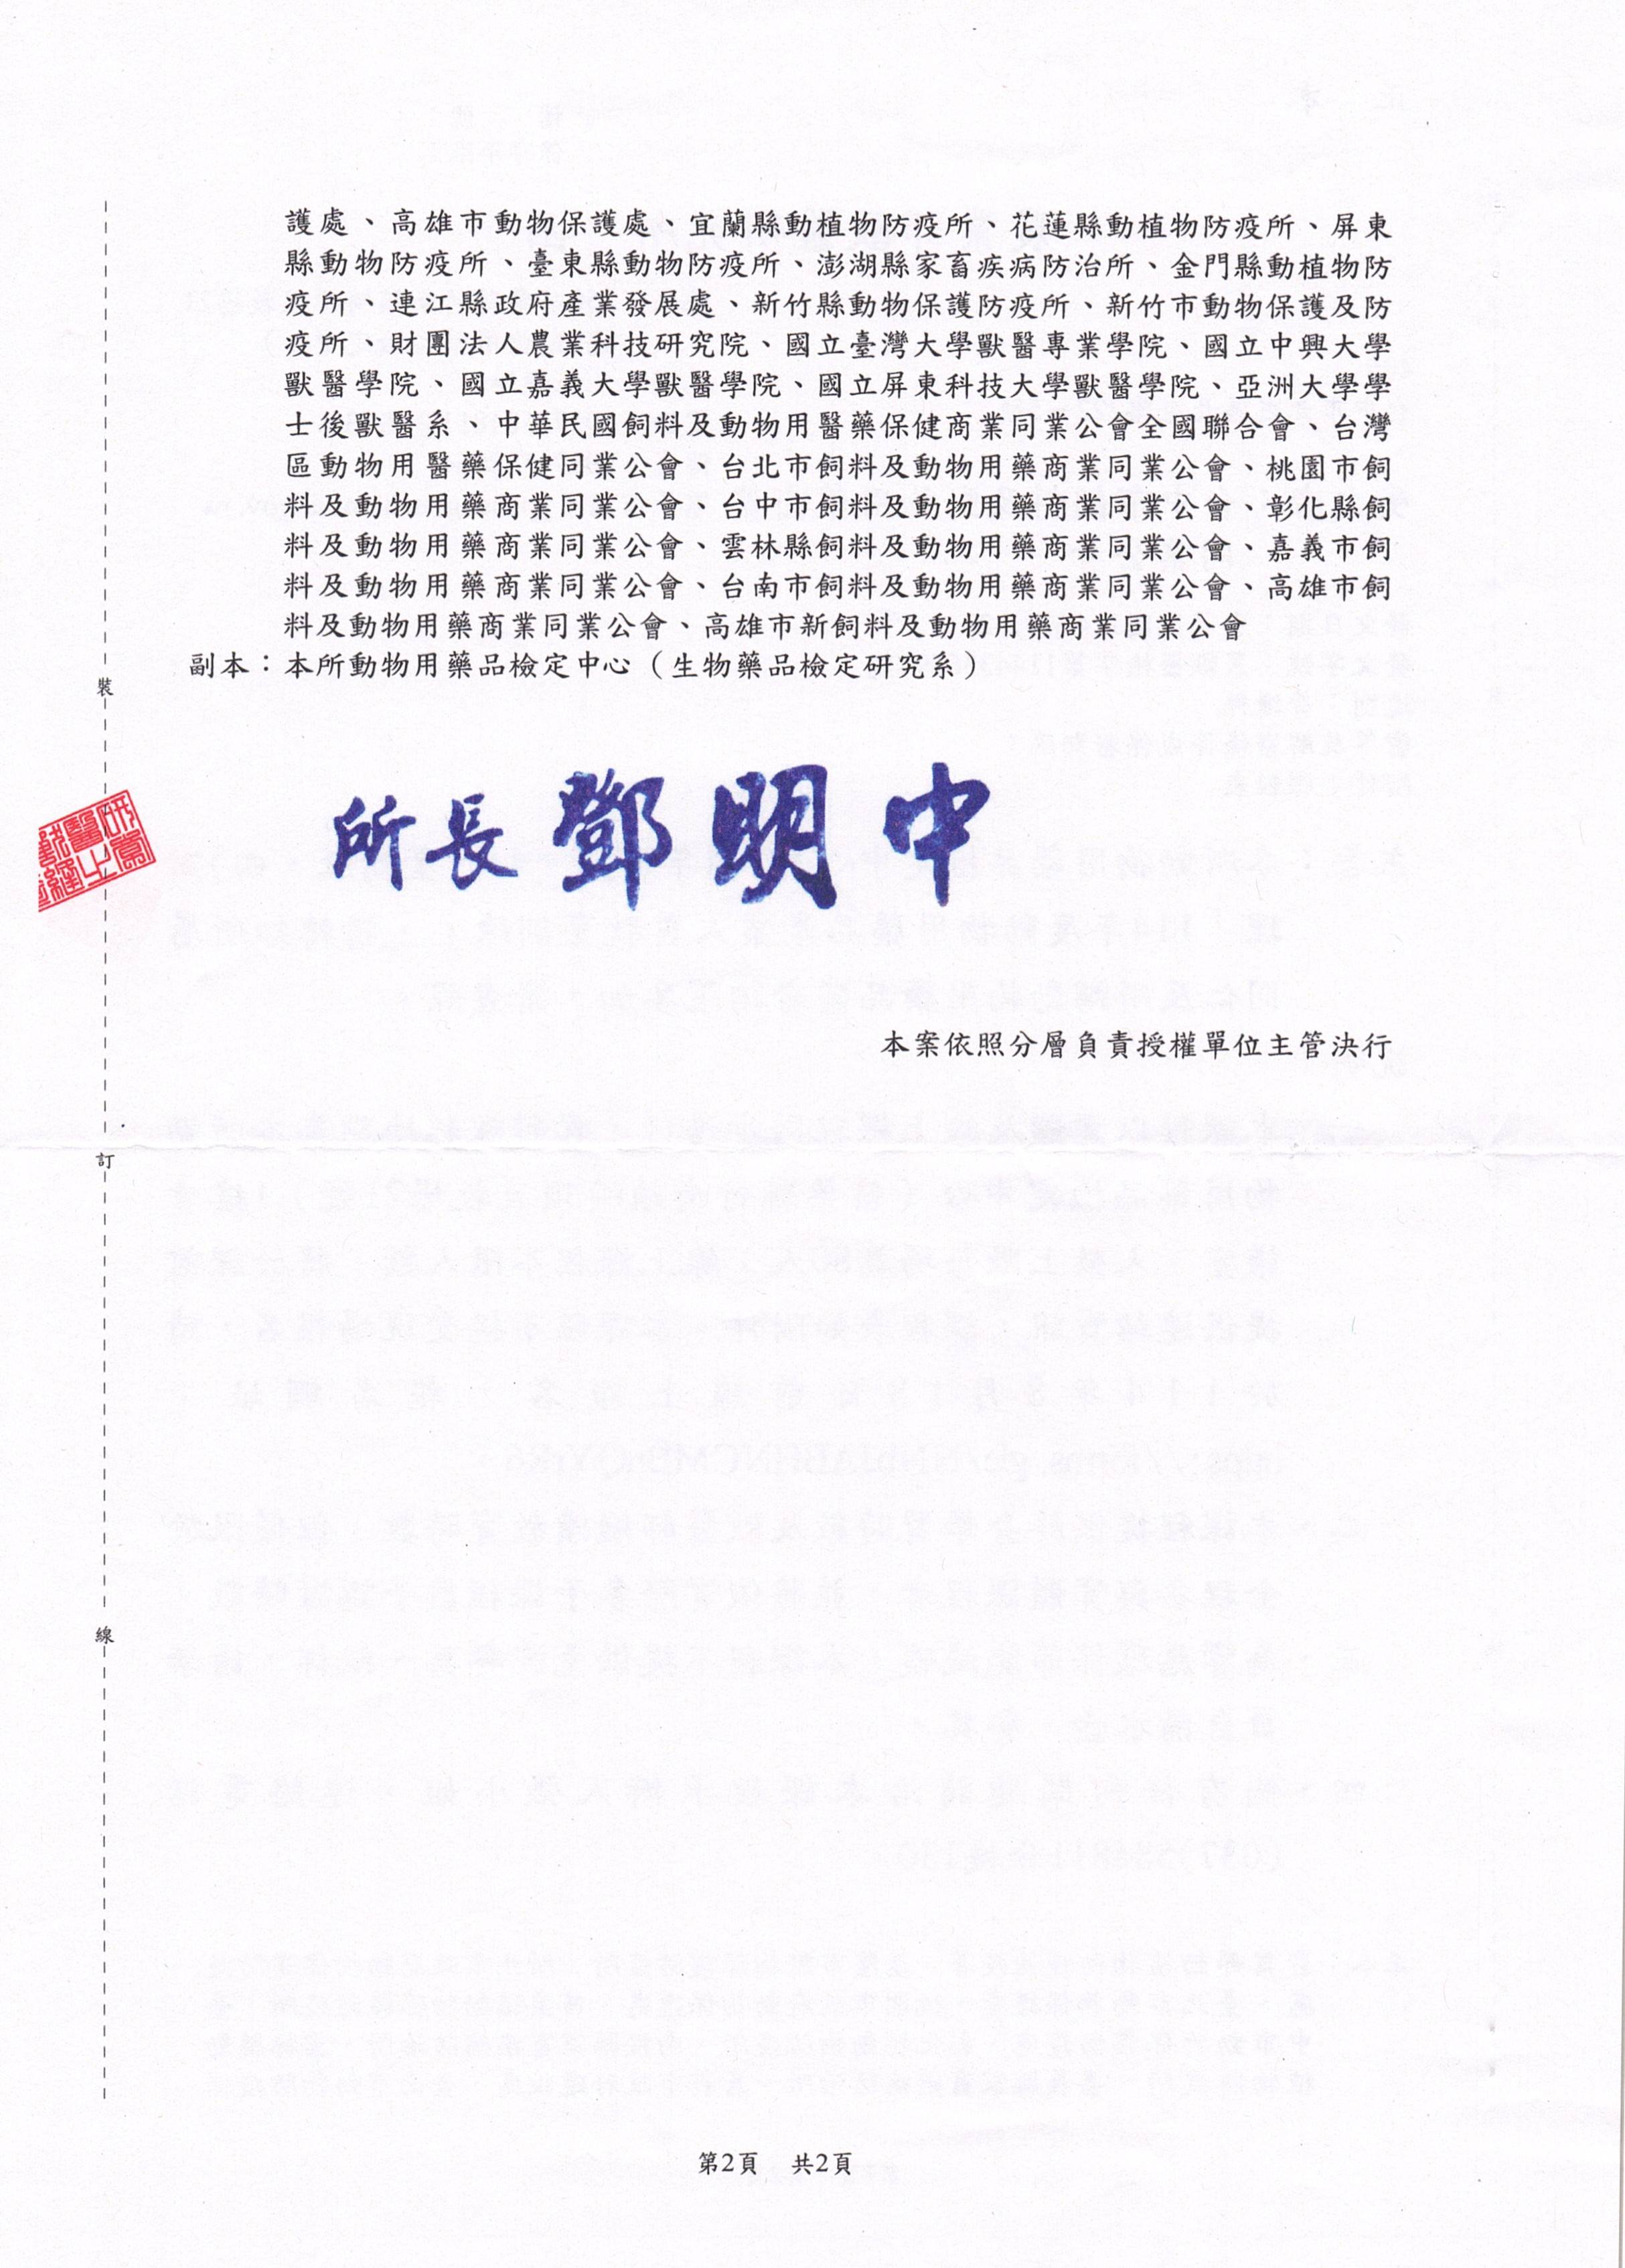 護處、高雄市動物保護處、宜蘭縣動植物防疫所、花蓮縣動植物防疫所、屏東
縣動物防疫所、臺東縣動物防疫所、澎湖縣家畜疾病防治所、金門縣動植物防
疫所、連江縣政府產業發展處、新竹縣動物保護防疫所、新竹市動物保護及防
疫所、財團法人農業科技研究院、國立臺灣大學獸醫專業學院、國立中興大學
獸醫學院、國立嘉義大學獸醫學院、國立屏東科技大學獸醫學院、亞洲大學學
士後獸醫系、中華民國飼料及動物用醫藥保健商業同業公會全國聯合會、台灣
區動物用醫藥保健同業公會、台北市飼料及動物用藥商業同業公會、桃園市飼
料及動物用藥商業同業公會、台中市飼料及動物用藥商業同業公會、彰化縣飼
料及動物用藥商業同業公會、雲林縣飼料及動物用藥商業同業公會、嘉義市飼
料及動物用藥商業同業公會、台南市飼料及動物用藥商業同業公會、高雄市飼
料及動物用藥商業同業公會、高雄市新飼料及動物用藥商業同業公會
副本：本所動物用藥品檢定中心（生物藥品檢定研究系）
裝
所長 鄧明中
本案依照分層負責授權單位主管決行
訂
線
第2頁 共2頁